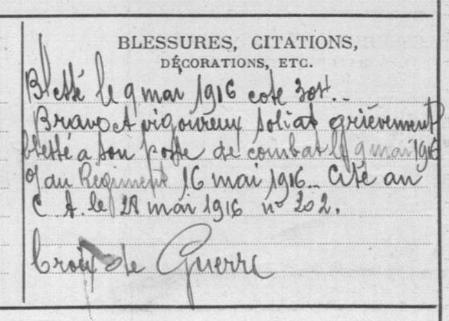 BLESSURES, CITATIONS,
DÉCORATIONS, ETC.
Blessé le 9 mai 1916 cote 304..
Brave et vigoureux soldat grièvement
blessé a son poste de combat le 9 mai 1916
O/ au Régiment 16 mai 1916.. Cité au
C. A. le 28 mai 1916 n° 202.
Croix de Guerre